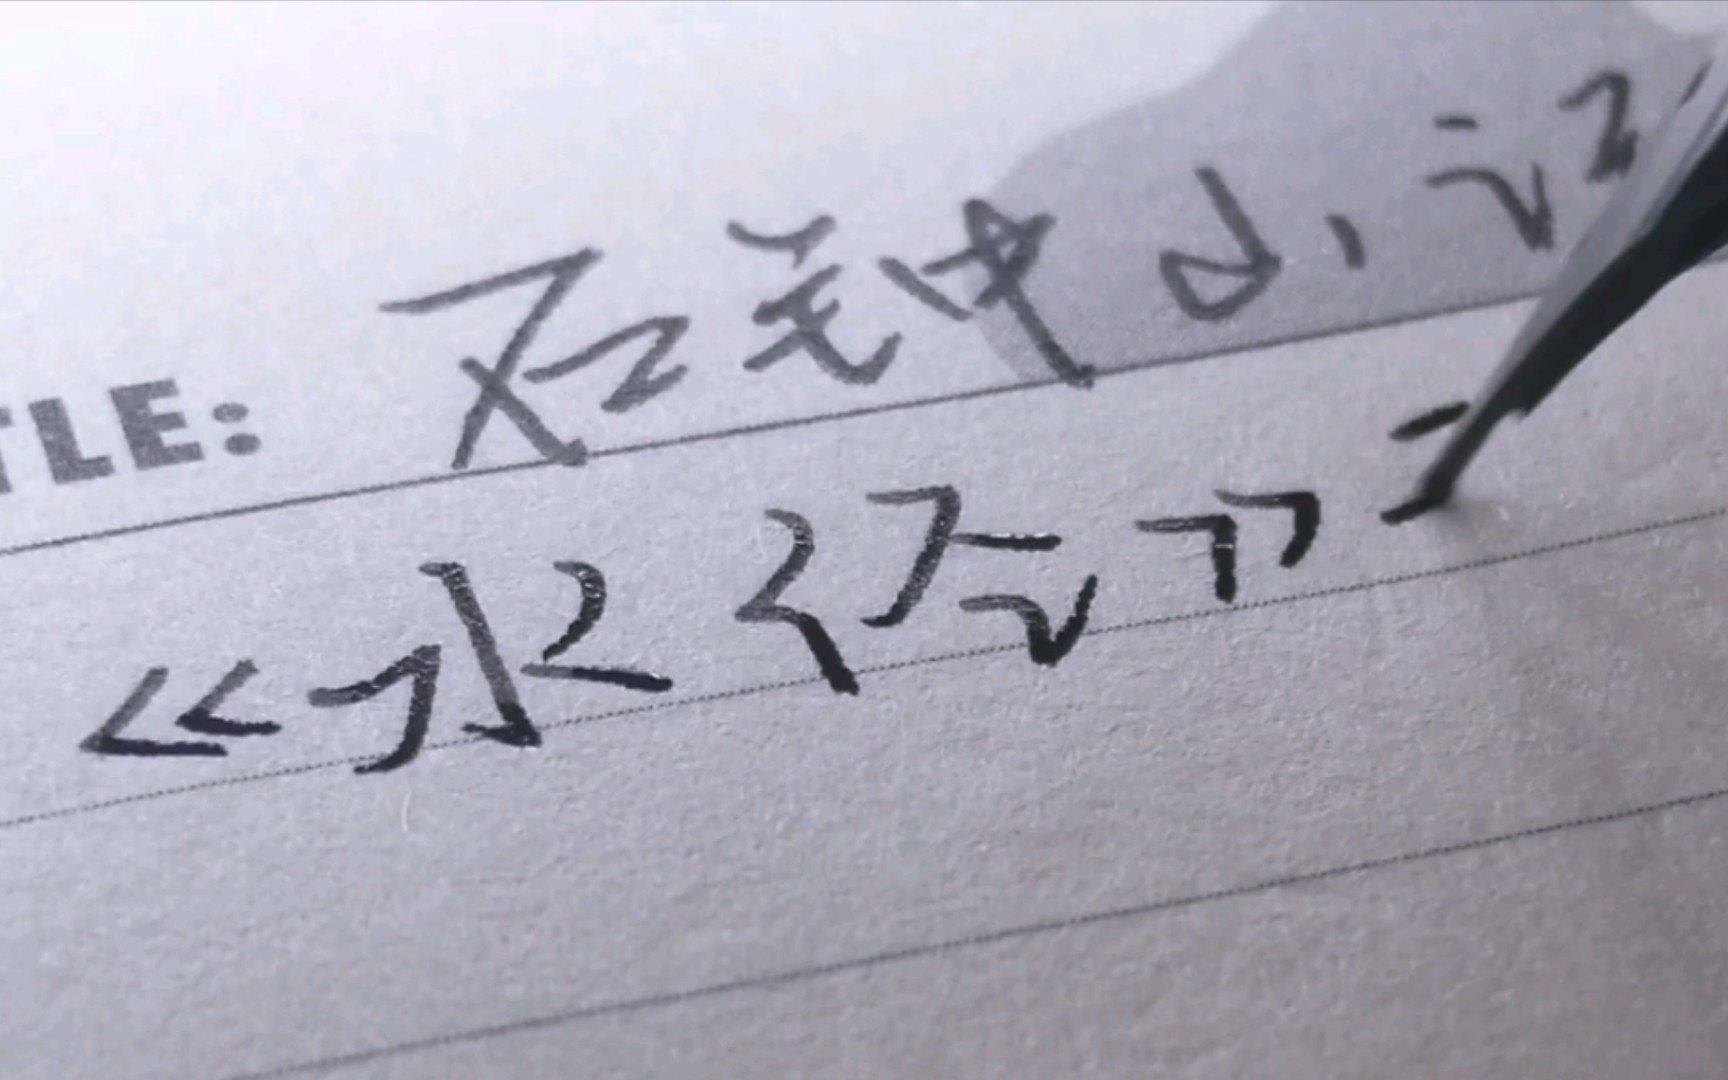 TLE: 石钟山记
《水经》